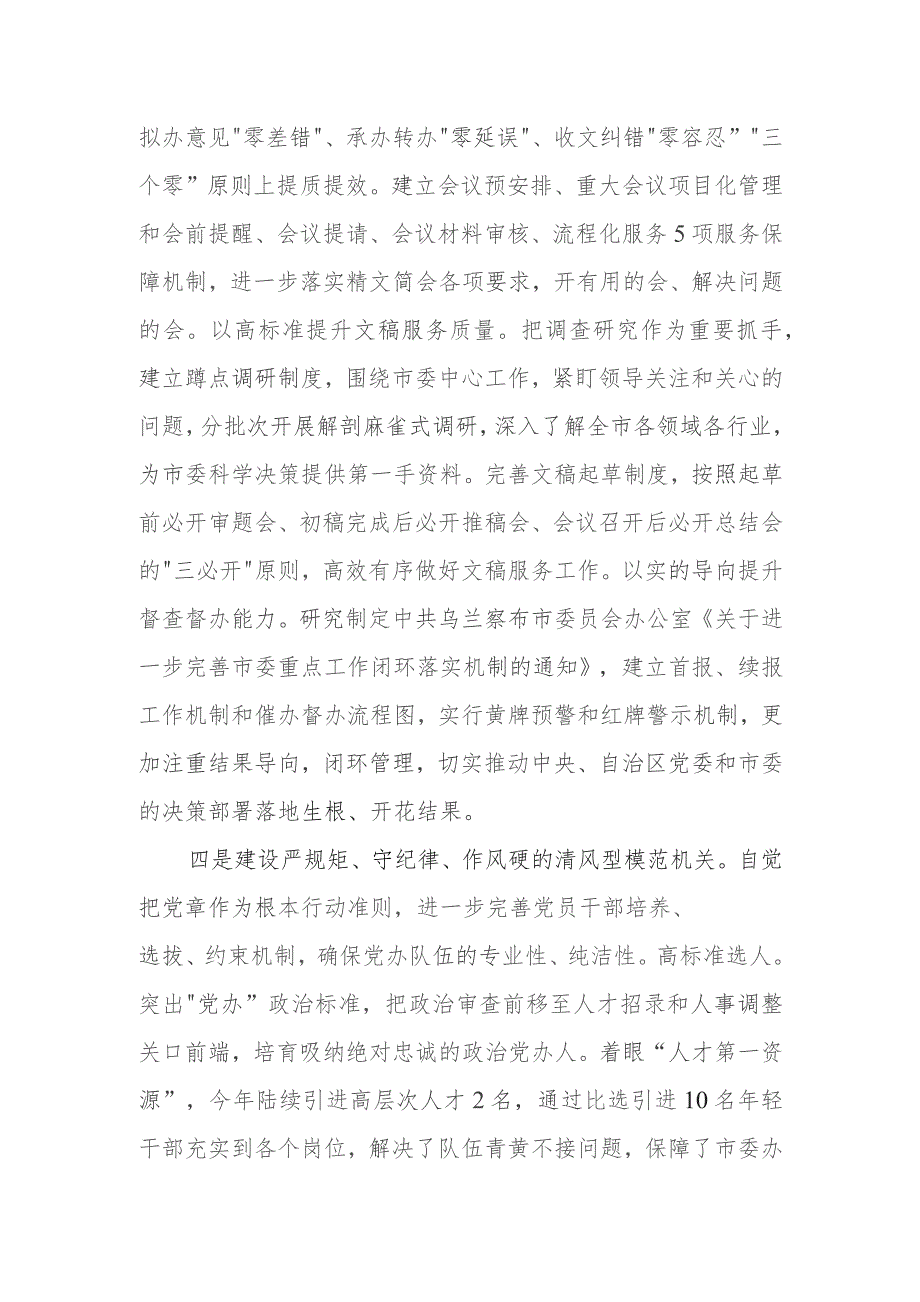 拟办意见"零差错"、承办转办"零延误"、收文纠错"零容忍”"三
个零”原则上提质提效。建立会议预安排、重大会议项目化管理
和会前提醒、会议提请、会议材料审核、流程化服务5项服务保
障机制，进一步落实精文简会各项要求，开有用的会、解决问题
的会。以高标准提升文稿服务质量。把调查研究作为重要抓手，
建立蹲点调研制度，围绕市委中心工作，紧盯领导关注和关心的
问题，分批次开展解剖麻雀式调研，深入了解全市各领域各行业，
为市委科学决策提供第一手资料。完善文稿起草制度，按照起草
前必开审题会、初稿完成后必开推稿会、会议召开后必开总结会
的"三必开"原则，高效有序做好文稿服务工作。以实的导向提升
督查督办能力。研究制定中共乌兰察布市委员会办公室《关于进
一步完善市委重点工作闭环落实机制的通知》，建立首报、续报
工作机制和催办督办流程图，实行黄牌预警和红牌警示机制，更
加注重结果导向，闭环管理，切实推动中央、自治区党委和市委
的决策部署落地生根、开花结果。
四是建设严规矩、守纪律、作风硬的清风型模范机关。自觉
把党章作为根本行动准则，进一步完善党员干部培养、
选拔、约束机制，确保党办队伍的专业性、纯洁性。高标准选人。
突出"党办”政治标准，把政治审查前移至人才招录和人事调整
关口前端，培育吸纳绝对忠诚的政治党办人。着眼“人才第一资
源”，今年陆续引进高层次人才2名，通过比选引进10名年轻
干部充实到各个岗位，解决了队伍青黄不接问题，保障了市委办